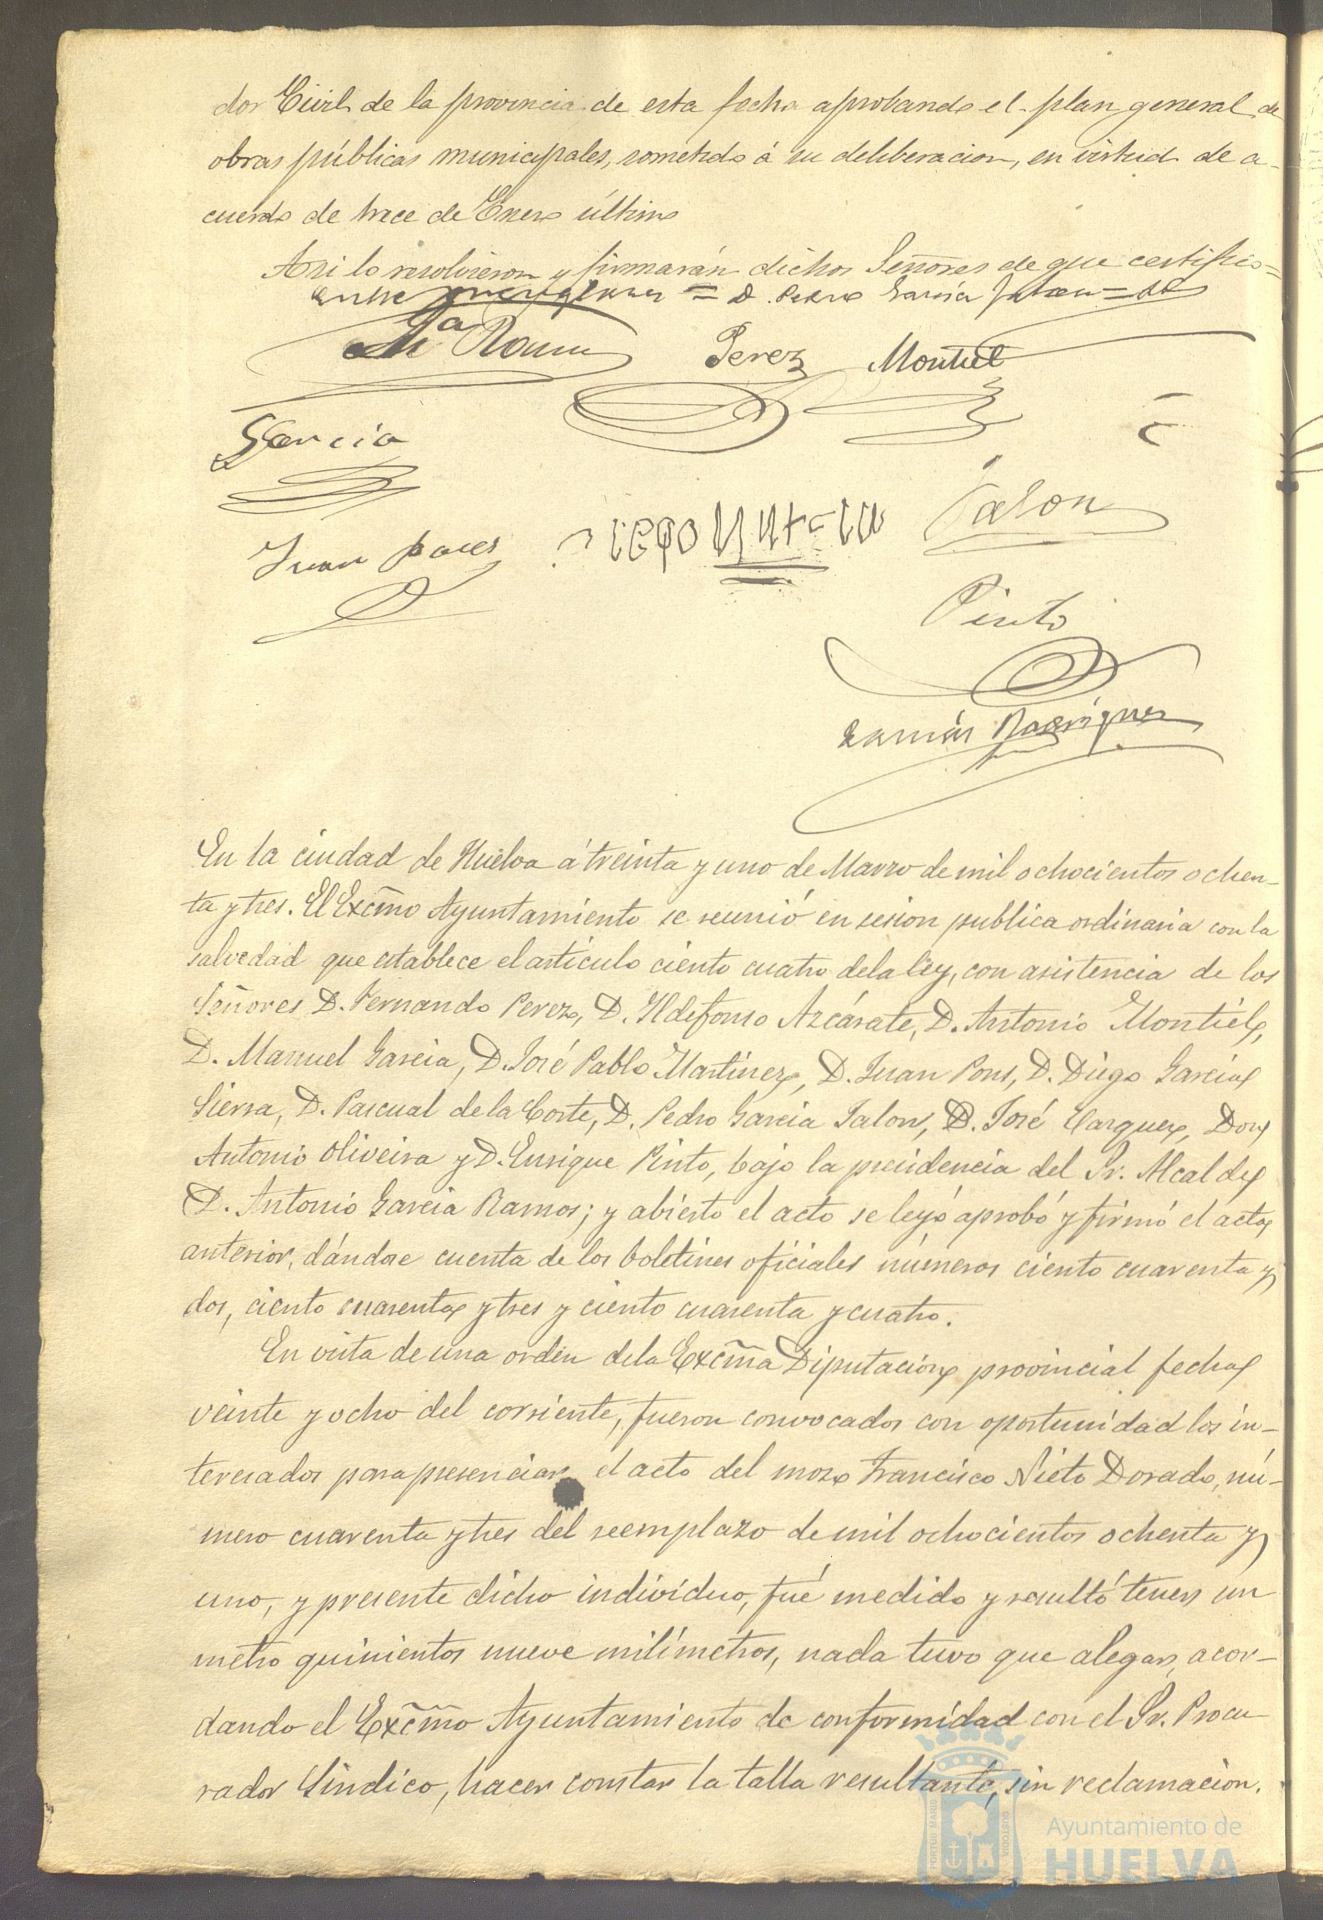 dor Civil de la provincia de esta fecha aprobando el plan general de
obras públicas municipales, sometido á su deliberacion, en virtud de a-
cuerdo de trece de Enero último
Asi lo resolvieron y firmarán dichos Señores de que certifico=
entre renglones = D. Pedro García Jalon =
Ga Ramos
Perez Montiel
Garcia
Jalon
Juan Pons
Diego Garcia
Pinto
Ramón Rodriguez
En la ciudad de Huelva á treinta y uno de Marzo de mil ochocientos ochen-
ta y tres. El Excmo Ayuntamiento se reunió en sesion publica ordinaria con la
salvedad que establece el artículo ciento cuatro de la ley, con asistencia de los
Señores D. Fernando Perez, D. Ildefonso Azcárate, D. Antonio Montiel,
D. Manuel Garcia, D. José Pablo Martinez, D. Juan Pons, D. Diego Garcia
Sierra, D. Pascual de la Corte, D. Pedro Garcia Jalon, D. José Vazquez, Don
Antonio Oliveira y D. Enrique Pinto, bajo la presidencia del Sr. Alcalde
D. Antonio Garcia Ramos; y abierto el acto se leyó aprobó y firmó el acta
anterior, dándose cuenta de los boletines oficiales números ciento cuarenta y
dos, ciento cuarenta y tres y ciento cuarenta y cuatro.
En vista de una orden de la Excma Diputacion provincial fecha
veinte y ocho del corriente, fueron convocados con oportunidad los in-
teresados para presenciar el acto del mozo Francisco Nieto Dorado, nú-
mero cuarenta y tres del reemplazo de mil ochocientos ochenta y
uno, y presente dicho individuo, fué medido y resultó tener un
metro quinientos nueve milímetros, nada tuvo que alegar, acor-
dando el Excmo Ayuntamiento de conformidad con el Sr. Procu
rador Síndico, hacer constar la talla resultante, sin reclamacion.
Ayuntamiento de
HUELVA